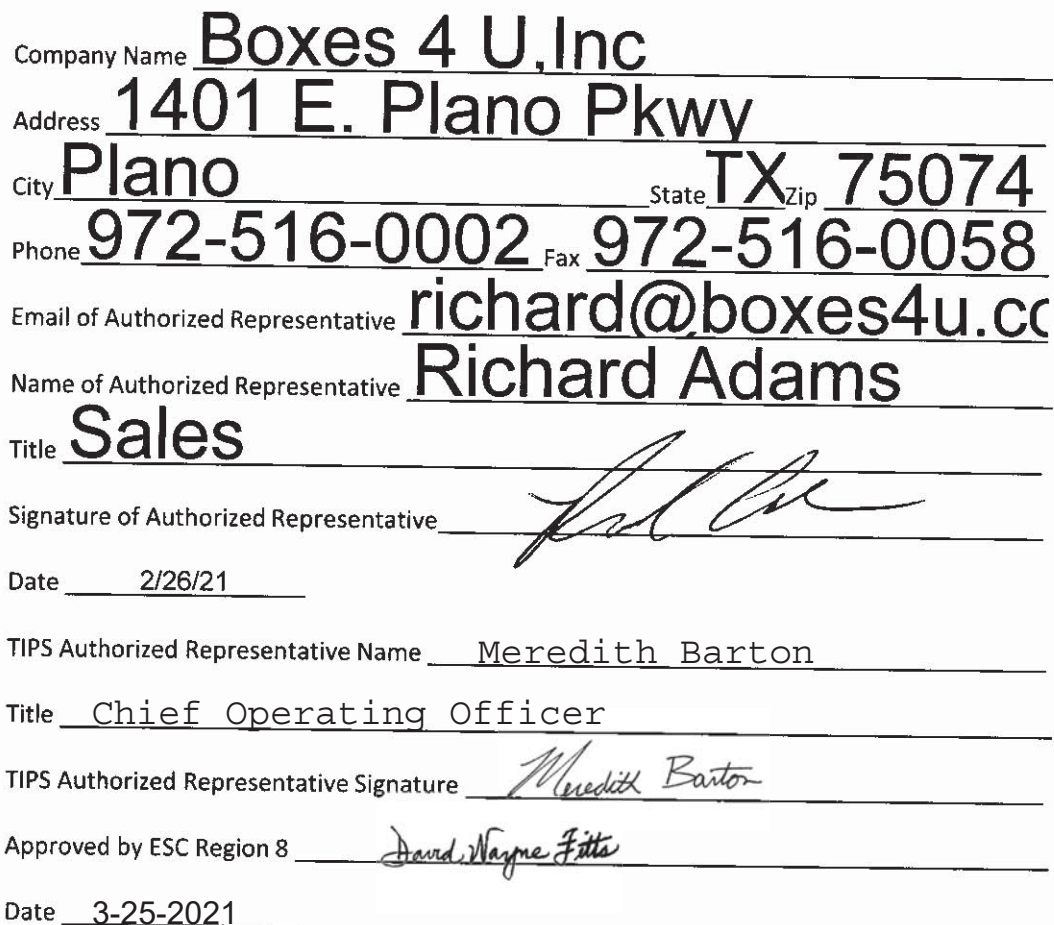 Company Name Boxes 4 U,Inc
Address 1401 E. Plano Pkwy
City Plano State TX Zip 75074
Phone 972-516-0002 Fax 972-516-0058
Email of Authorized Representative richard@boxes4u.co
Name of Authorized Representative Richard Adams
Title Sales
Signature of Authorized Representative
Date 2/26/21
TIPS Authorized Representative Name Meredith Barton
Title Chief Operating Officer
TIPS Authorized Representative Signature Meredith Barton
Approved by ESC Region 8 David Wayne Fitts
Date 3-25-2021